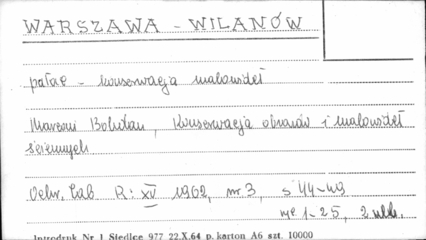 WARSZAWA - WILANÓW
pałac - konserwacja malowideł
Marconi Bohdan, Konserwacja obrazów i malowideł
ściennych
Ochr. Zab R: XV 1962, nr 3, s 44-49
ryc 1-25, 2 tabl.
Introdruk Nr 1 Siedlce 977 22.X.64 p. karton A6 szt. 10000